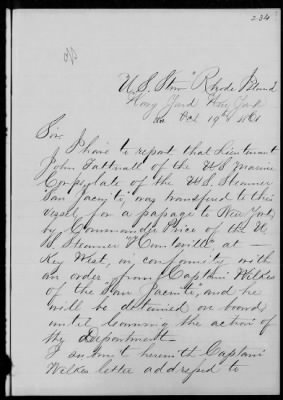 234
U.S. Str "Rhode Island"
Navy Yard New York
Oct 19th 1861
Sir
I have to report that Lieutenant
John Tattnall of the US Marine
Corps, late of the U.S. Steamer
"San Jacinto," was transferred to this
vessel for a passage to New York,
by Commander Price of the U
S Steamer "Huntsville", at
Key West, in conformity with
an order from Captain Wilkes
of the "San Jacinto", and he
will be detained on board
until learning the action of
the Department.
I submit herewith Captain
Wilkes letter addressed to